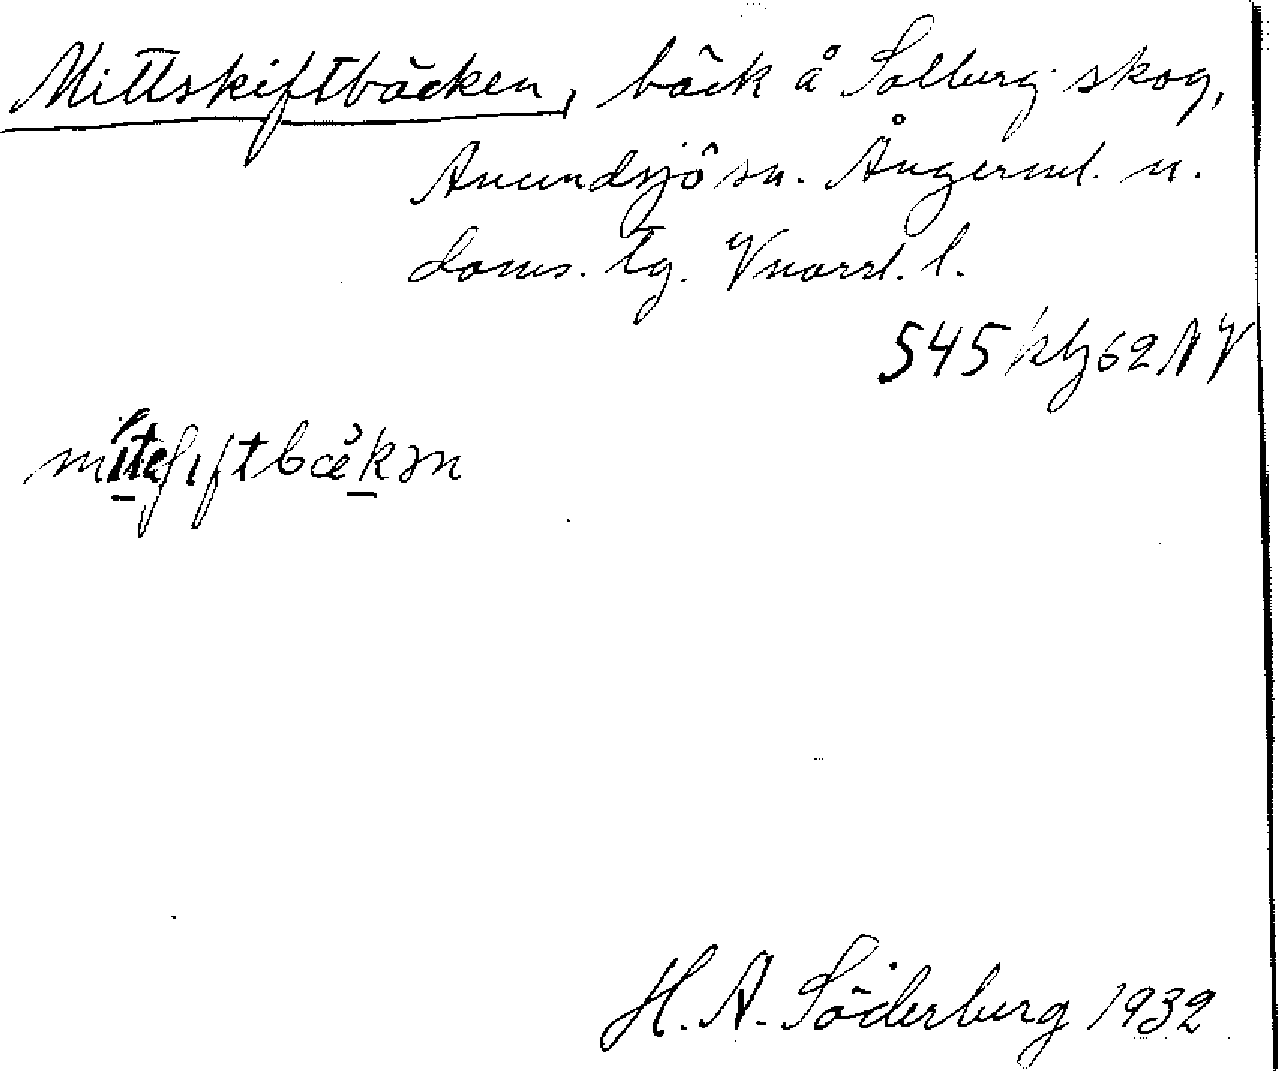 Mittskiftbäcken, bäck å Solberg skog,
Anundsjö sn. Ångerml. n.
doms. tg. Vnorrl. l.
545 62 NV
H. A. Söderberg 1932